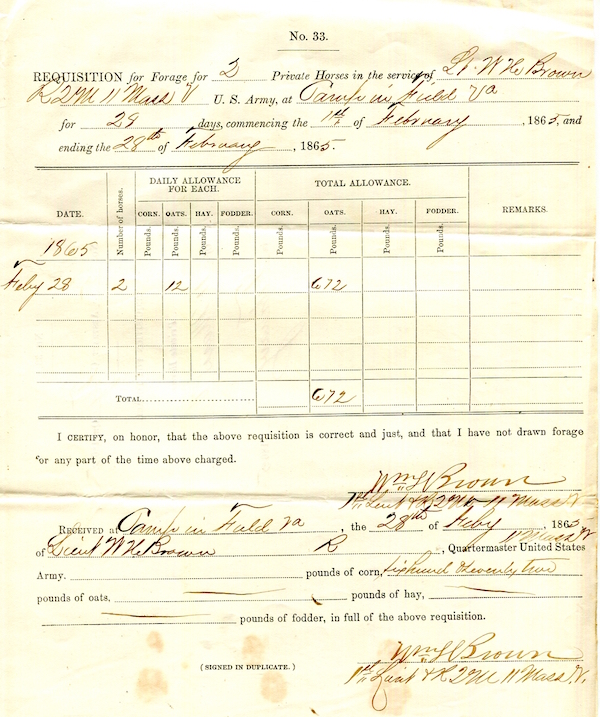 No. 33.
REQUISITION for Forage for 2 Private Horses in the service of Lt. W H Brown
R 2 M 11 Mass V U. S. Army, at Camp in Field Va
for 28 days, commencing the 1st of February, 1865, and
ending the 28th of February, 1865.
DATE. Number of horses. DAILY ALLOWANCE FOR EACH. TOTAL ALLOWANCE. REMARKS.
CORN. OATS. HAY. FODDER. CORN. OATS. HAY. FODDER.
Pounds. Pounds. Pounds. Pounds. Pounds. Pounds. Pounds. Pounds.
1865
Feby 28 2 12 672
TOTAL 672
I CERTIFY, on honor, that the above requisition is correct and just, and that I have not drawn forage
for any part of the time above charged.
Brown
1st Lieut & R 2 M 11 Mass V.
RECEIVED at Camp in Field Va, the 28th of Feby, 1865
of Lieut W H Brown R 11 Mass V, Quartermaster United States
Army. pounds of corn,
pounds of oats, pounds of hay,
pounds of fodder, in full of the above requisition.
Brown
(SIGNED IN DUPLICATE.) 1st Lieut & R 2 M 11 Mass V.